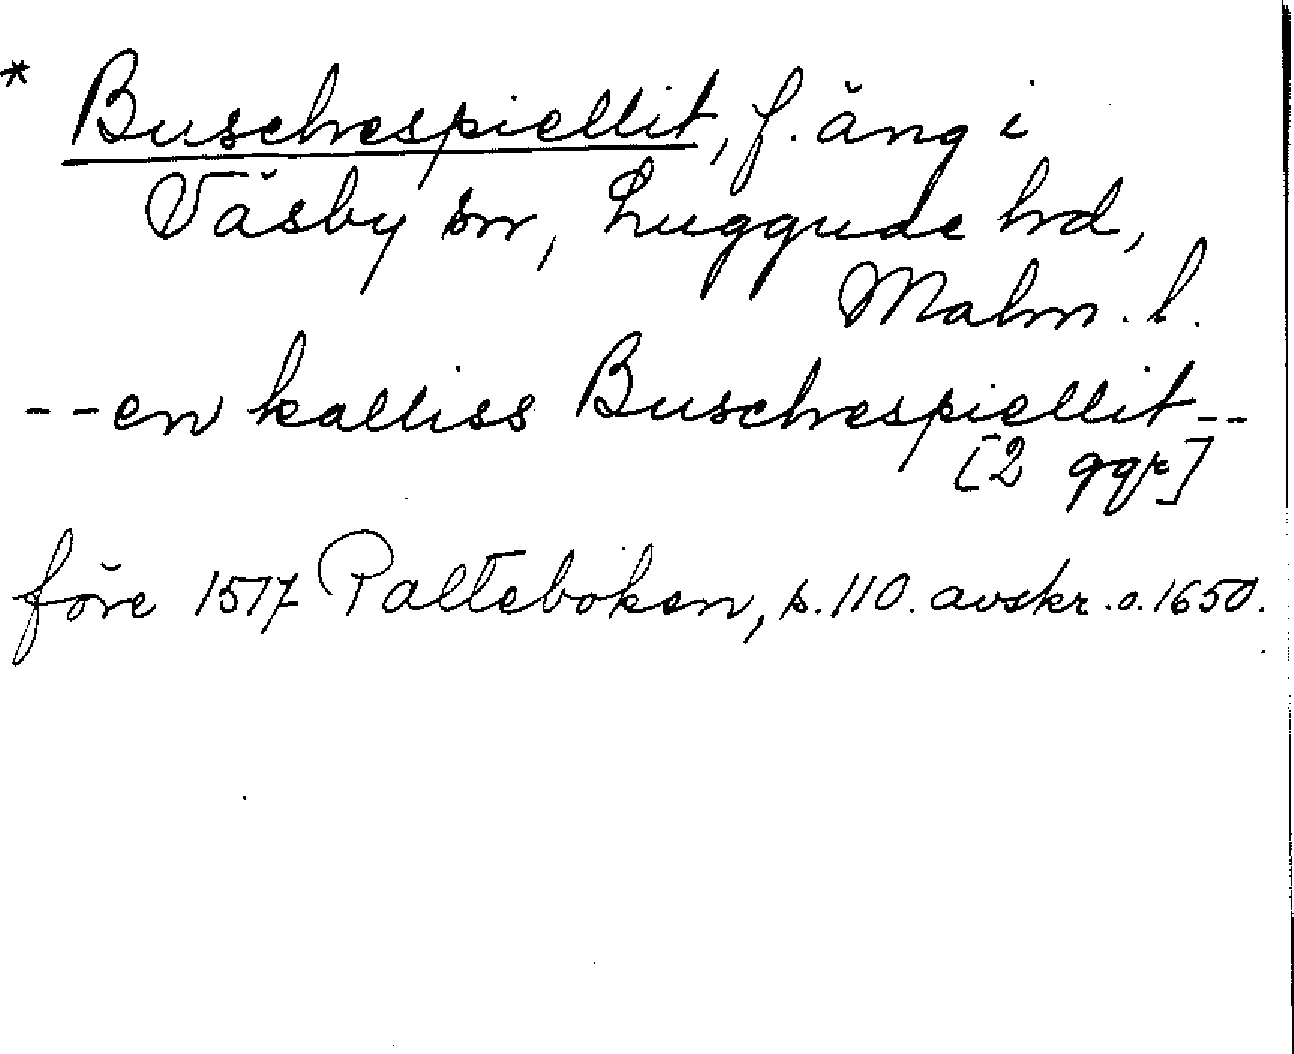 * Buschespiellit, f. äng i
Väsby sn, Luggude hd,
Malm. l.
--en kalliss Buschespiellit--
[2 ggr]
före 1517 Palteboken, s. 110. avskr. o. 1650.